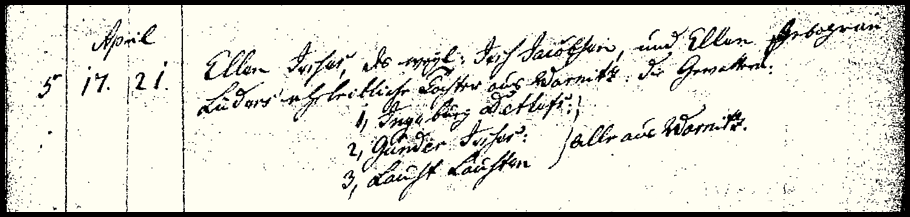 April
5 17. 21. Ellen Jesses, des weyl: Jess Jacobsen, und Ellen gebohrnen
Lüders eheleibliche Tochter aus Warnitz. die Gevattern:
1, Ingeburg Detlefs.
2, Günder Jesses. } alle aus Warnitz.
3, Laust Lausten